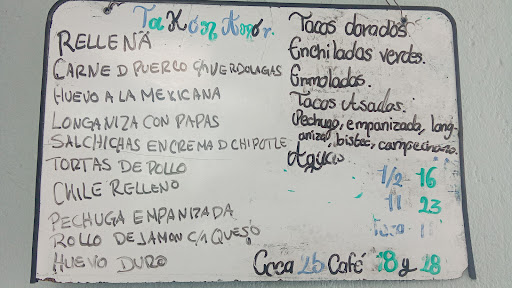 Ta Kón Amór.
RELLENA
CARNE D PUERCO C/VERDOLAGAS
HUEVO A LA MEXICANA
LONGANIZA CON PAPAS
SALCHICHAS EN CREMA D CHIPOTLE
TORTAS DE POLLO
CHILE RELLENO
PECHUGA EMPANIZADA
ROLLO DE JAMON C/1 QUESO
HUEVO DURO
Tacos dorados.
Enchiladas verdes.
Enmoladas.
Tacos Asados.
Pechuga, empanizada, long-
aniza, bistec, campechano.
Agua
1/2 16
1 l 23
Coca 25 Café 18 y 28